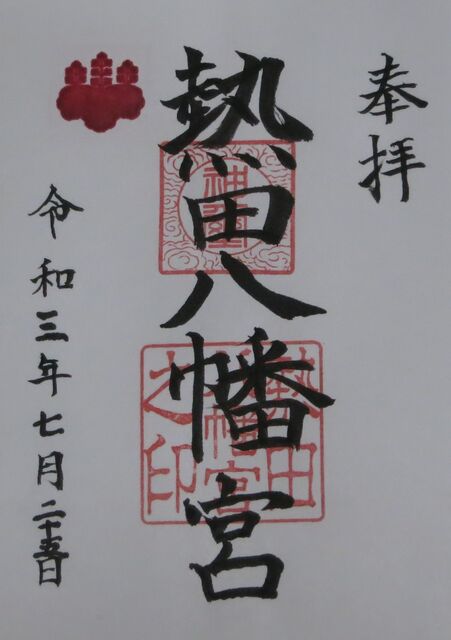 奉拝
熱田八幡宮
熱田八幡宮之印
令和三年七月二十五日